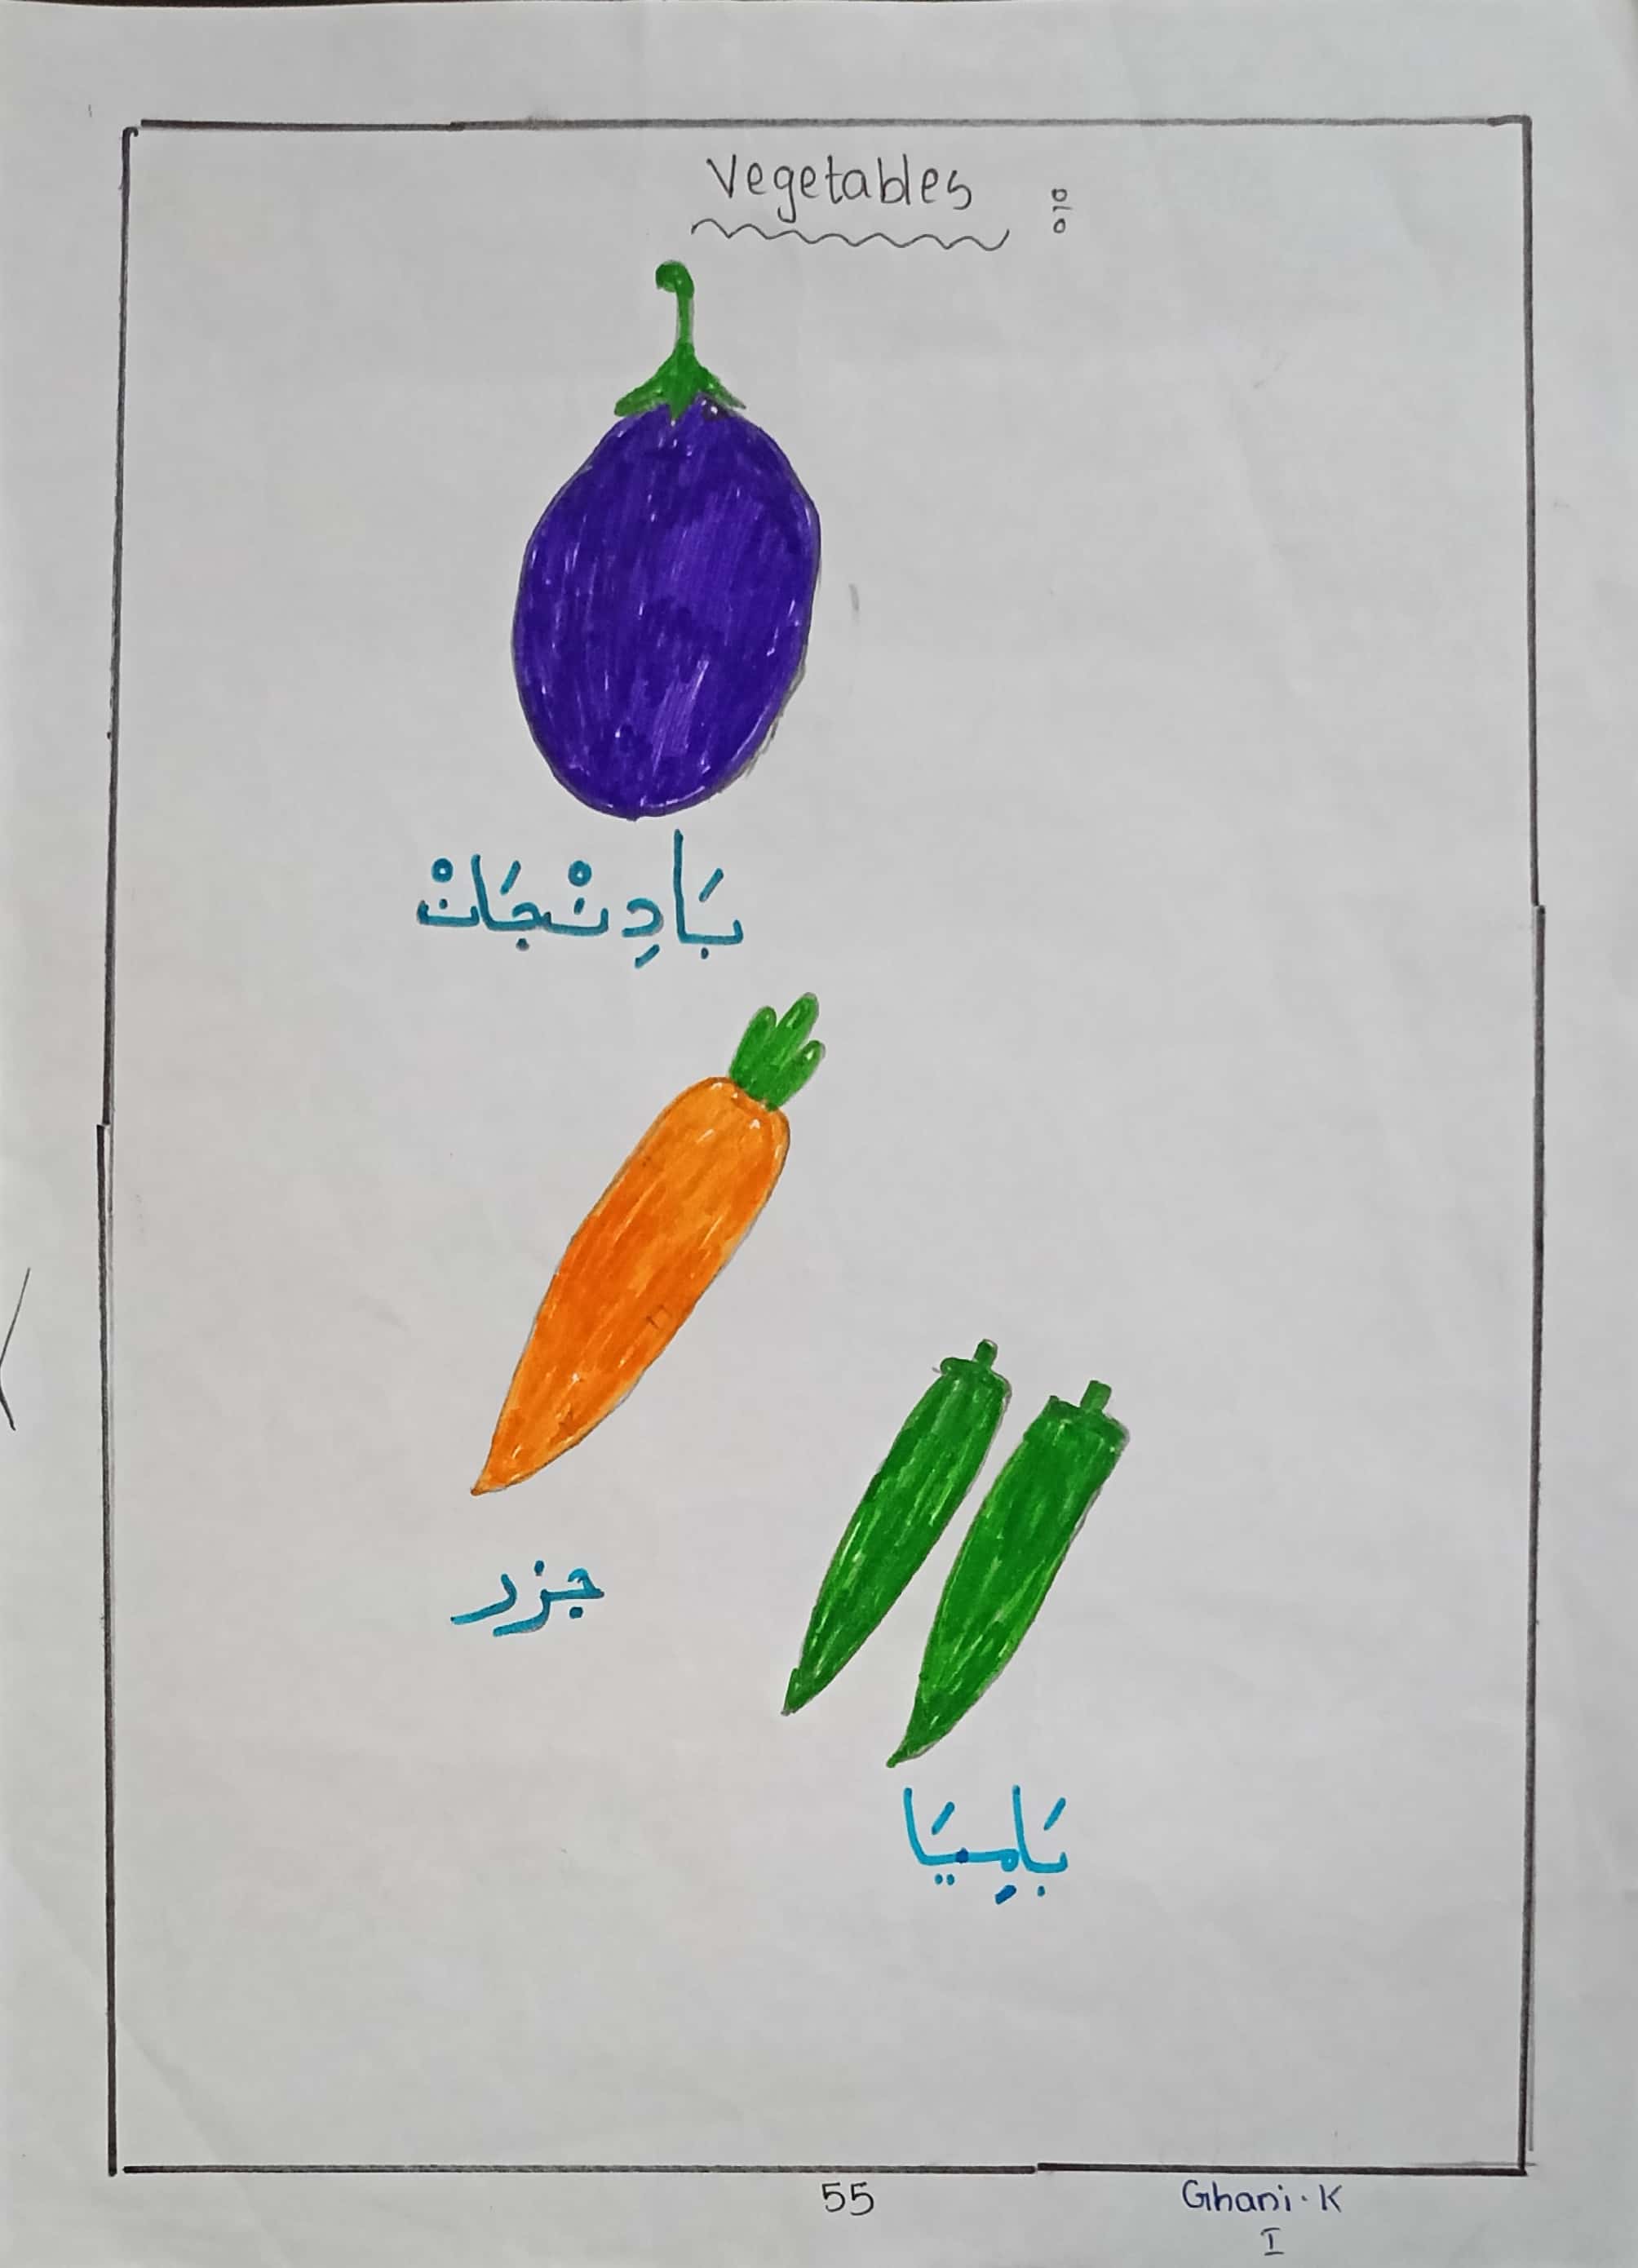 Vegetables :
بَادِنْجَانْ
جزر
بَامِيَا
55
Ghani. K
I